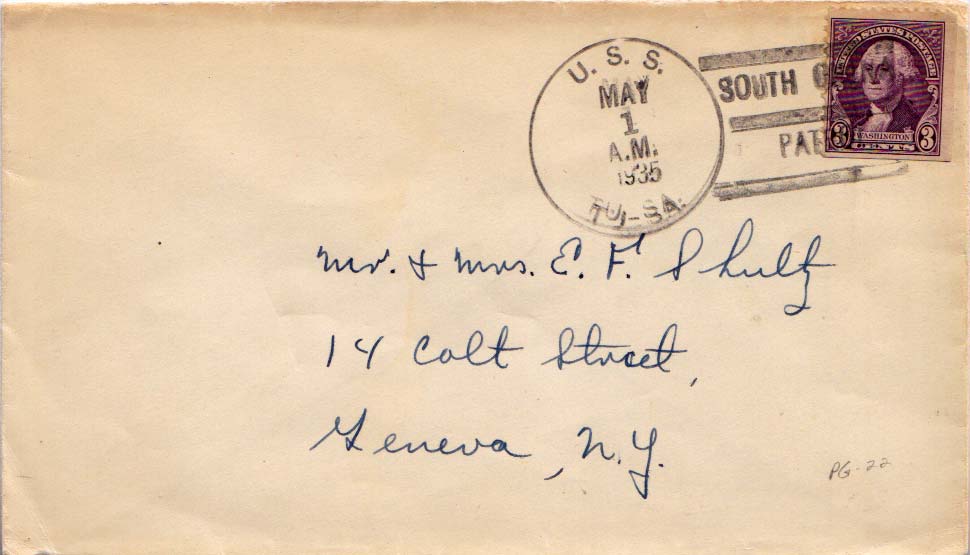 U. S. S.
MAY
1
A.M.
1935
TULSA.
SOUTH
PAT
UNITED STATES POSTAGE
3 WASHINGTON 3
CENTS
Mr. & Mrs. E. F. Shultz
14 Colt Street,
Geneva, N.Y.
PG-22